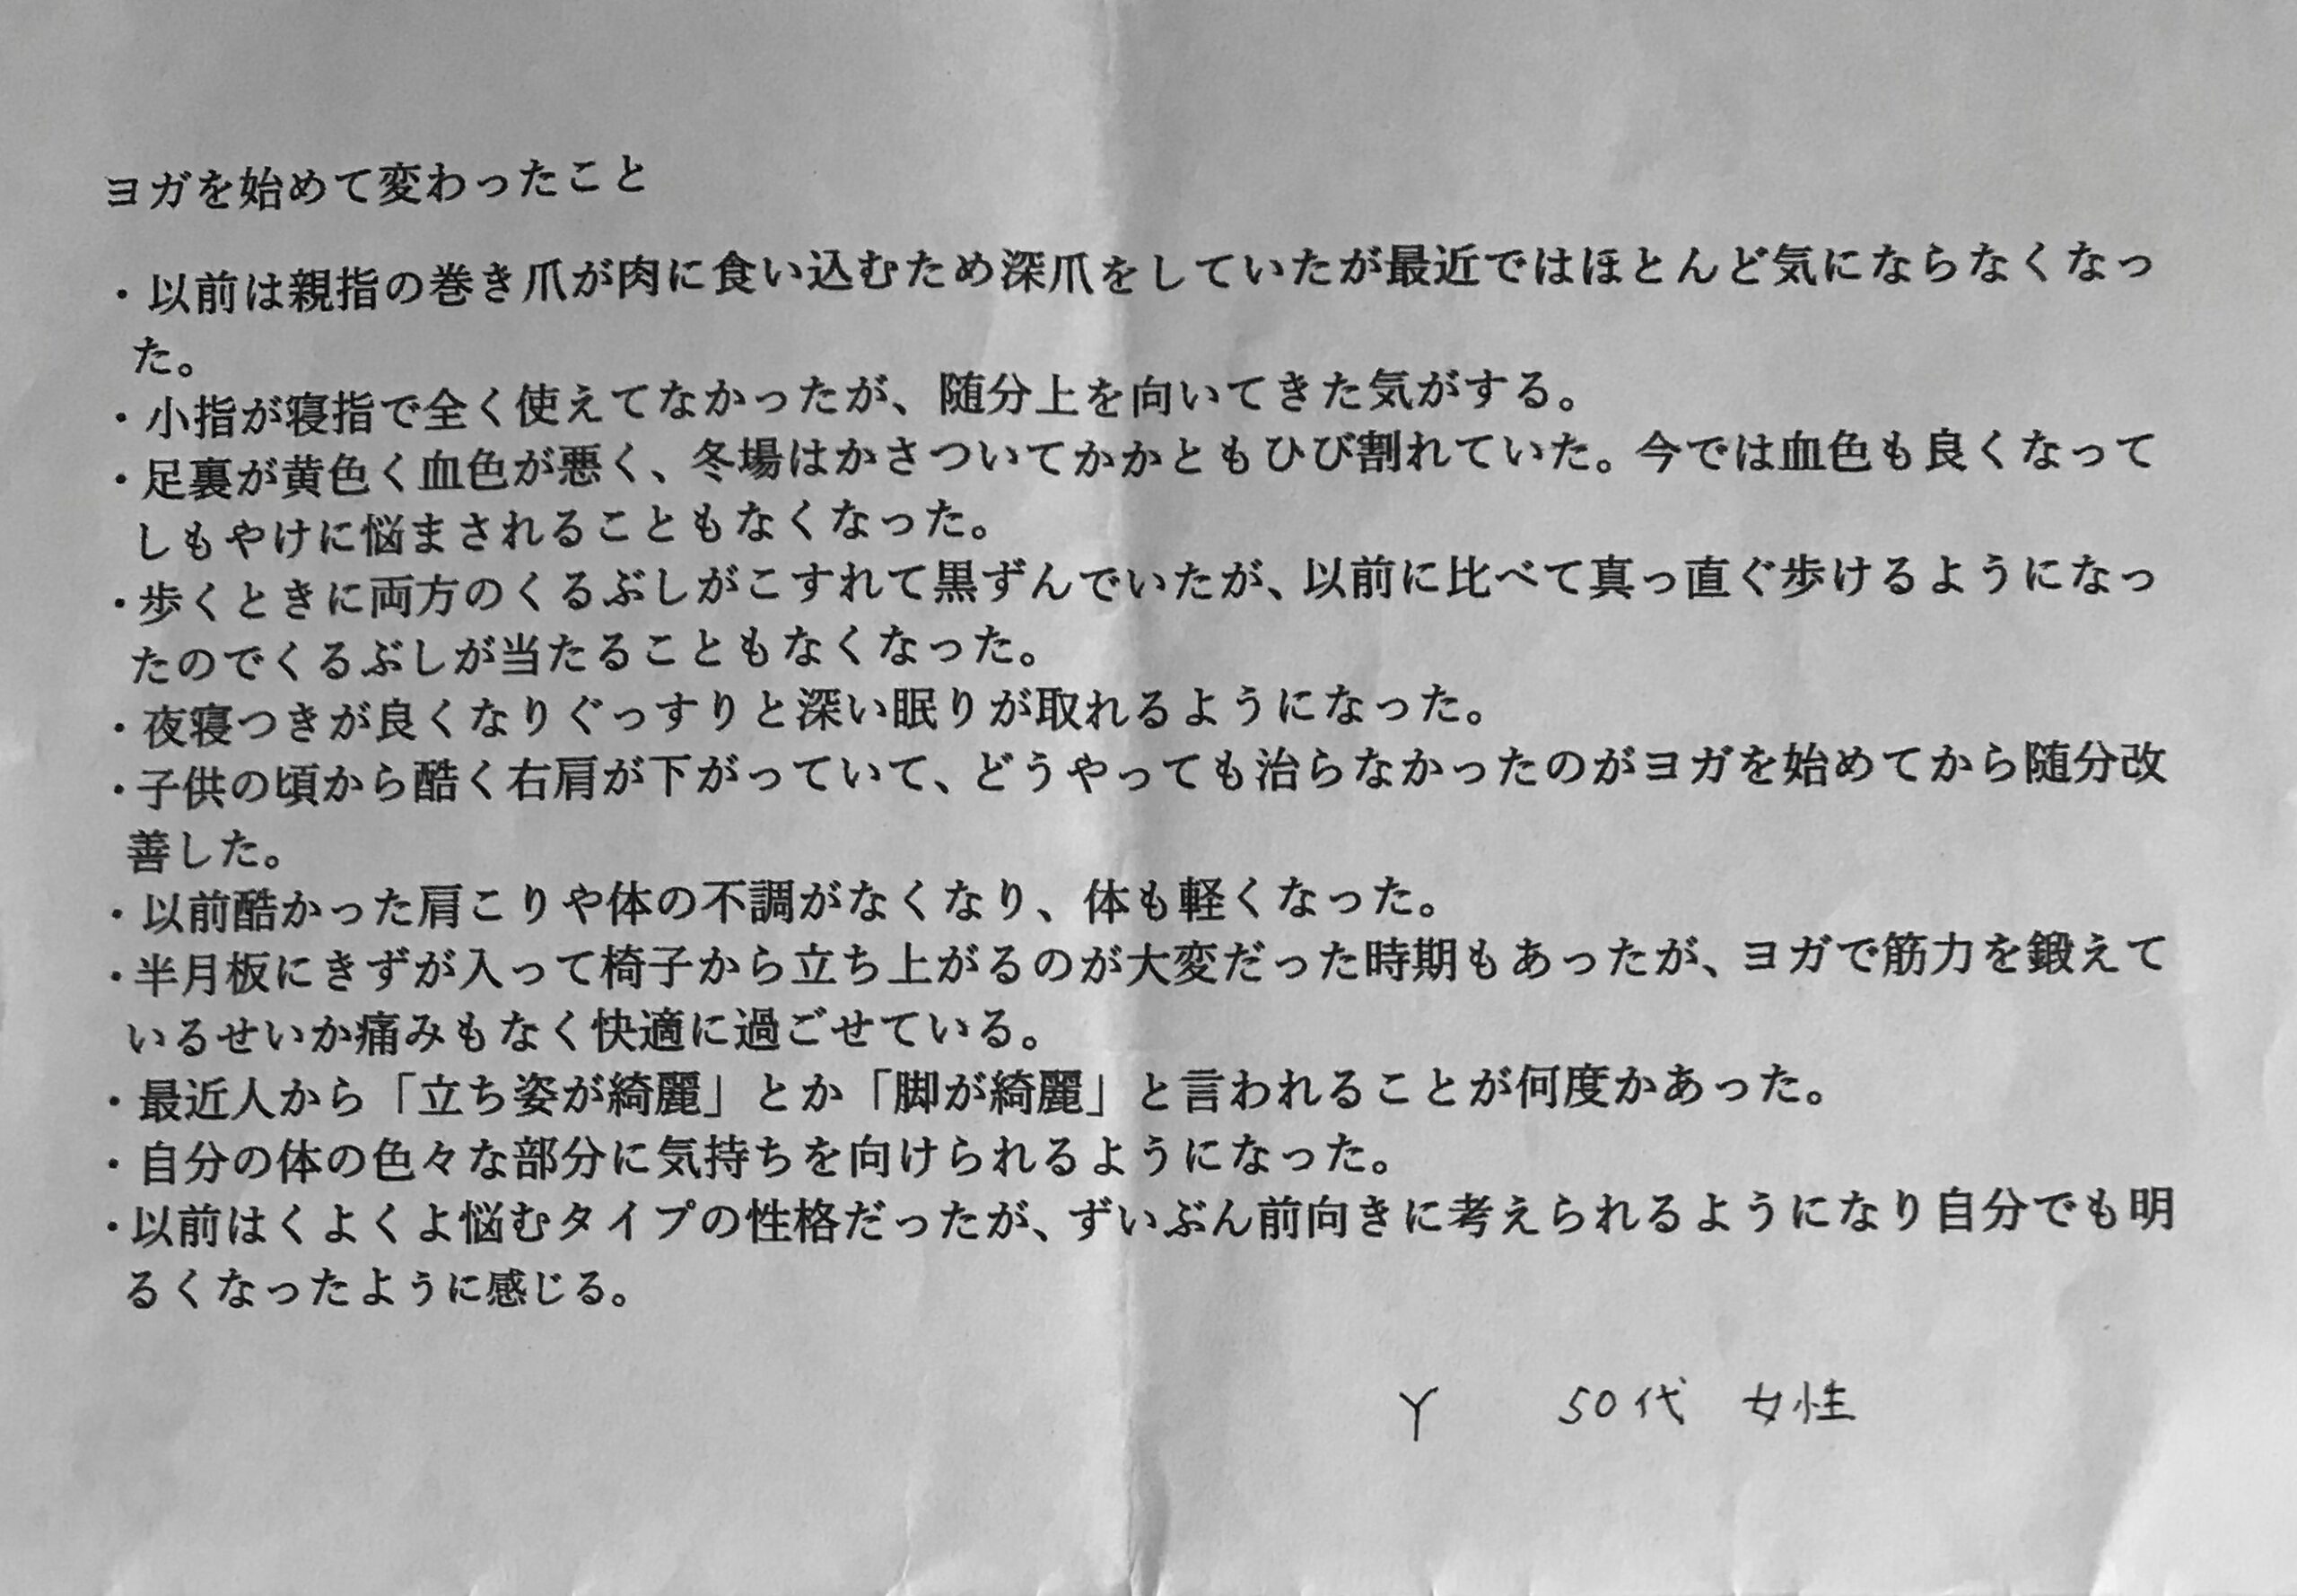 ヨガを始めて変わったこと
・以前は親指の巻き爪が肉に食い込むため深爪をしていたが最近ではほとんど気にならなくなっ
た。
・小指が寝指で全く使えてなかったが、随分上を向いてきた気がする。
・足裏が黄色く血色が悪く、冬場はかさついてかかともひび割れていた。今では血色も良くなって
しもやけに悩まされることもなくなった。
・歩くときに両方のくるぶしがこすれて黒ずんでいたが、以前に比べて真っ直ぐ歩けるようになっ
たのでくるぶしが当たることもなくなった。
・夜寝つきが良くなりぐっすりと深い眠りが取れるようになった。
・子供の頃から酷く右肩が下がっていて、どうやっても治らなかったのがヨガを始めてから随分改
善した。
・以前酷かった肩こりや体の不調がなくなり、体も軽くなった。
・半月板にきずが入って椅子から立ち上がるのが大変だった時期もあったが、ヨガで筋力を鍛えて
いるせいか痛みもなく快適に過ごせている。
・最近人から「立ち姿が綺麗」とか「脚が綺麗」と言われることが何度かあった。
・自分の体の色々な部分に気持ちを向けられるようになった。
・以前はくよくよ悩むタイプの性格だったが、ずいぶん前向きに考えられるようになり自分でも明
るくなったように感じる。
Y 50代 女性